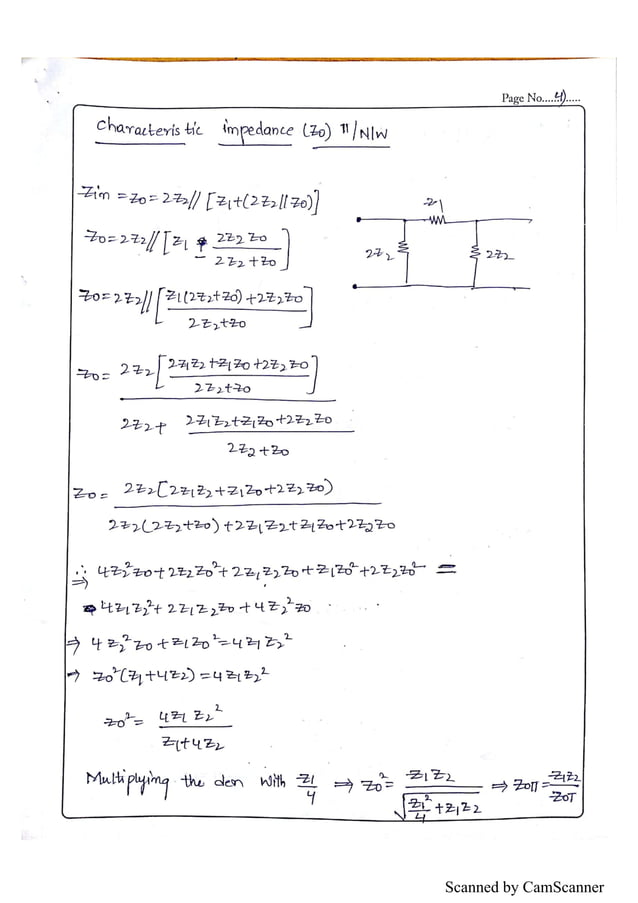 Page No.....4).....
Characteristic impedance (Z0) π/N/W
Zin = Z0 = 2Z2 // [Z1+(2Z2 || Z0)]
Z1
2Z2
2Z2
Z0 = 2Z2 // [Z1 + 2Z2 Z0 / 2Z2 + Z0]
Z0 = 2Z2 // [Z1(2Z2+Z0) + 2Z2Z0 / 2Z2+Z0]
Z0 = 2Z2 [2Z1Z2 + Z1Z0 + 2Z2Z0 / 2Z2+Z0] / 2Z2 + 2Z1Z2+Z1Z0+2Z2Z0 / 2Z2+Z0
Z0 = 2Z2 [2Z1Z2 + Z1Z0 + 2Z2Z0) / 2Z2(2Z2+Z0) + 2Z1Z2 + Z1Z0 + 2Z2Z0
∴ ⇒ 4Z2²Z0 + 2Z2Z0² + 2Z1Z2Z0 + Z1Z0² + 2Z2Z0² =
4Z1Z2² + 2Z1Z2Z0 + 4Z2²Z0
⇒ 4Z2²Z0 + Z1Z0² = 4Z1Z2²
→ Z0²(Z1+4Z2) = 4Z1Z2²
Z0² = 4Z1 Z2² / Z1+4Z2
Multiplying the den with Z1/4 ⇒ Z0² = Z1Z2 / √(Z1²/4 + Z1Z2) ⇒ Z0π = Z1Z2 / Z0T
Scanned by CamScanner